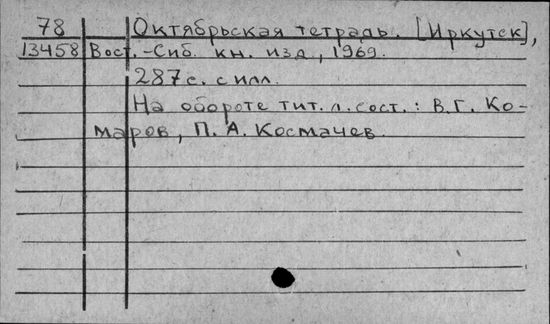 78 Октябрьская тетрадь. [Иркутск],
13458 Вост.-Сиб. кн. изд, 1969.
287с. с илл.
На обороте тит. л. сост.: В.Г. Ко-
маров, П. А. Космачев.